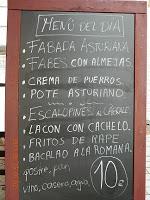 MENÚ DEL DÍA
• FABADA ASTURIANA
• FABES CON ALMEJAS.
• CREMA DE PUERROS.
POTE ASTURIANO
• ESCALOPINES AL CABRALES
• LACON CON CACHELO.
• FRITOS DE RAPE
• BACALAO A LA ROMANA.
postre, pan
vino, casera, agua
10€